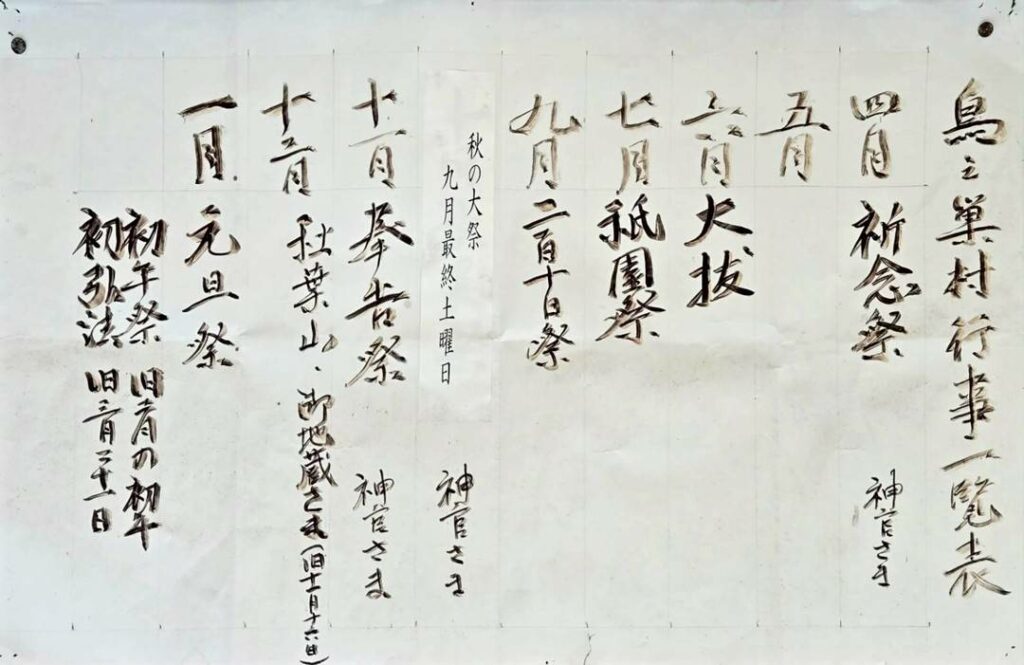 鳥之巣村行事一覧表
四月 祈念祭 神官さま
五月
六月 大拔
七月 祇園祭
九月 二百十日祭
秋の大祭
九月最終土曜日
神官さま
十一月 奉告祭 神官さま
十二月 秋葉山、御地蔵さま(旧十一月十六日)
一月 元旦祭
初午祭 旧二月の初午
初弘法 旧三月二十一日